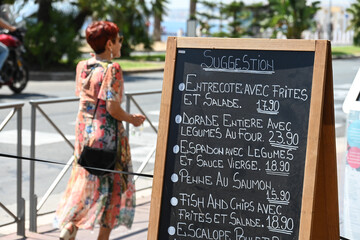 SUGGESTION
ENTRECOTE AVEC FRITES
ET SALADE. 17.90
DORADE ENTIERE AVEC
LEGUMES AU FOUR. 23.90
ESPADON AVEC LEGUMES
ET SAUCE VIERGE. 18.90
PENNE AU SAUMON.
15.90
FISH AND CHIPS AVEC
FRITES ET SALADE. 18.90
ESCALOPE